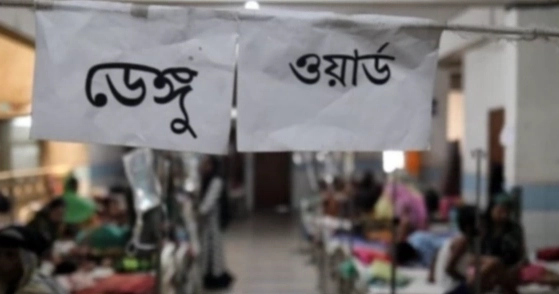 ডেঙ্গু ওয়ার্ড